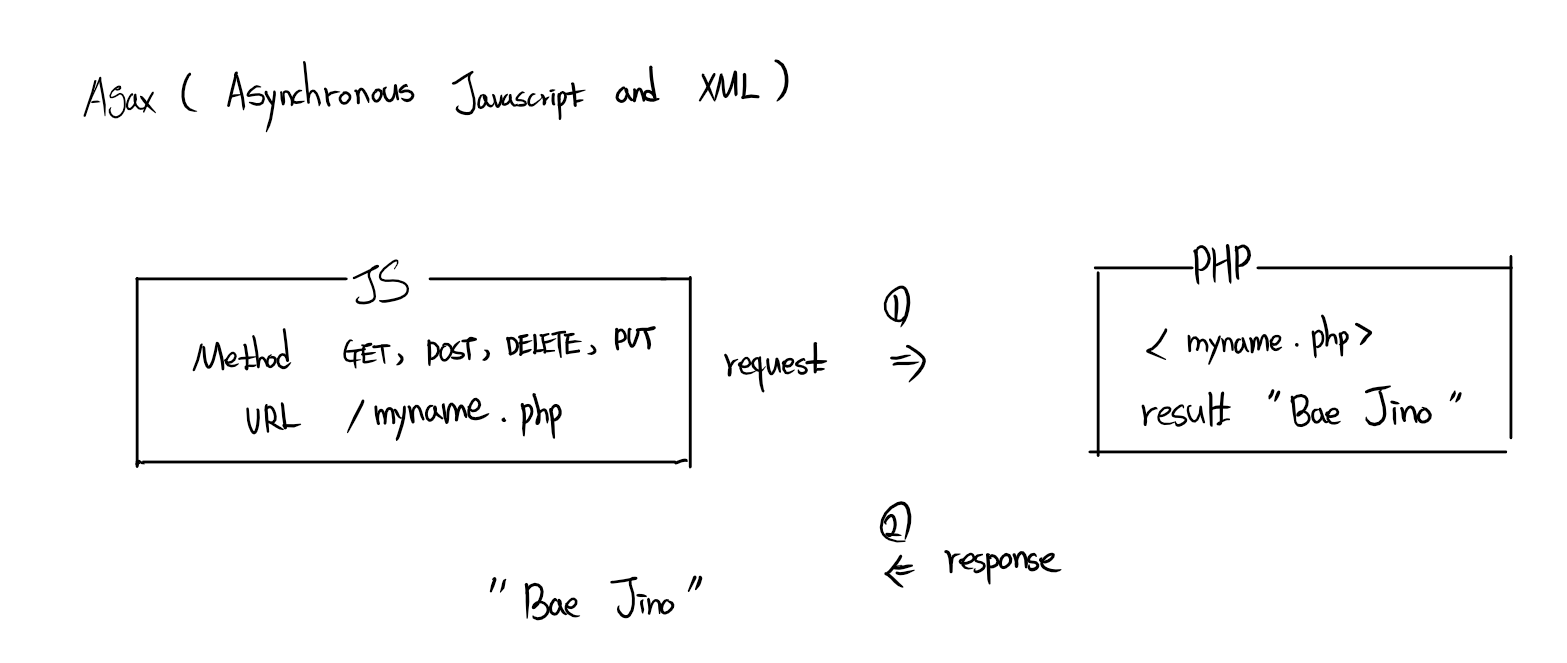 Ajax ( Asynchronous Javascript and XML )
JS
Method GET, POST, DELETE, PUT
URL /myname.php
request
①
⇒
PHP
< myname.php >
result "Bae Jino"
②
⇐ response
"Bae Jino"